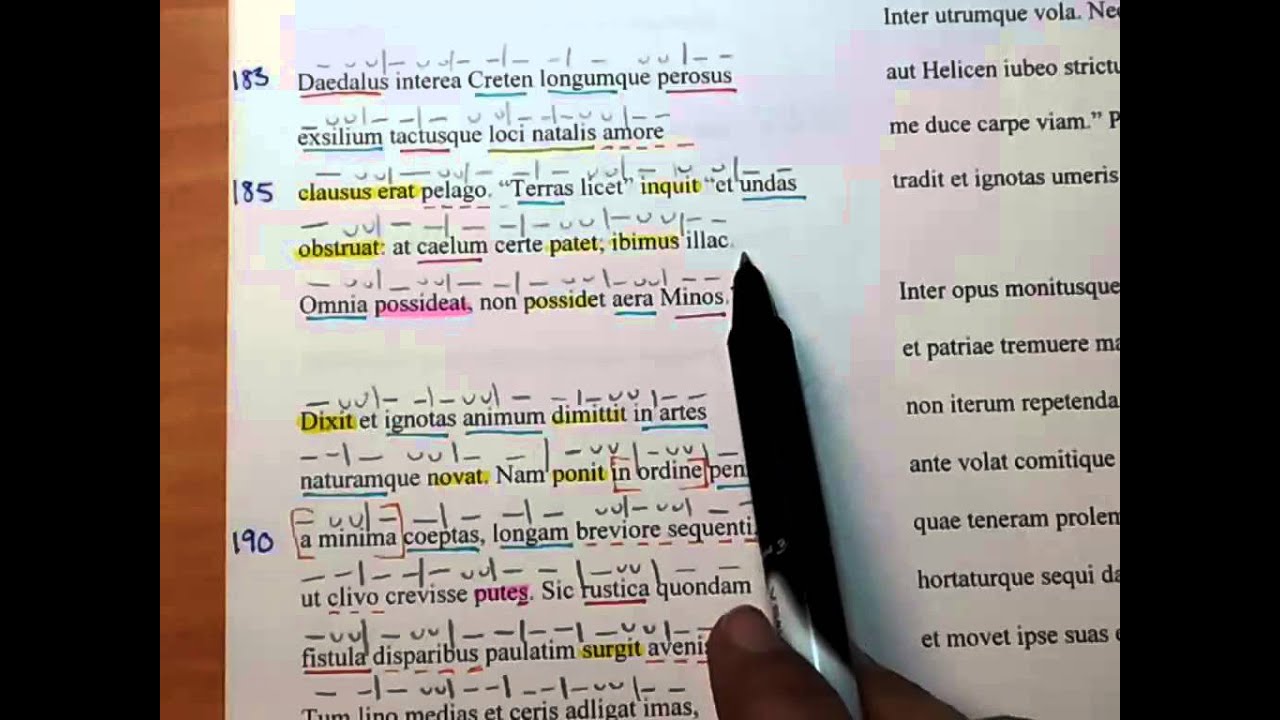 183 Daedalus interea Creten longumque perosus
exsilium tactusque loci natalis amore
185 clausus erat pelago. “Terras licet” inquit “et undas
obstruat: at caelum certe patet; ibimus illac.
Omnia possideat, non possidet aera Minos.
Dixit et ignotas animum dimittit in artes
naturamque novat. Nam ponit in ordine pen
190 a minima coeptas, longam breviore sequenti,
ut clivo crevisse putes. Sic rustica quondam
fistula disparibus paulatim surgit avenis
Tum lino medias et ceris adligat imas,
Inter utrumque vola. Nec
aut Helicen iubeo strictu
me duce carpe viam.” P
tradit et ignotas umeris
Inter opus monitusque
et patriae tremuere ma
non iterum repetenda
ante volat comitique
quae teneram prolem
hortaturque sequi da
et movet ipse suas